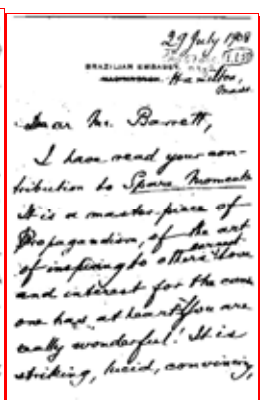 29 July 1908
BRAZILIAN EMBASSY
Hamilton,
Mass.
Dear Mr. Barrett,
I have read your con-
tribution to Spare Moments
It is a master-piece of
Propagandism, of the art
of inspiring to others love
and interest for the cause
one has at heart. You are
really wonderful! It is
striking, lucid, convincing,